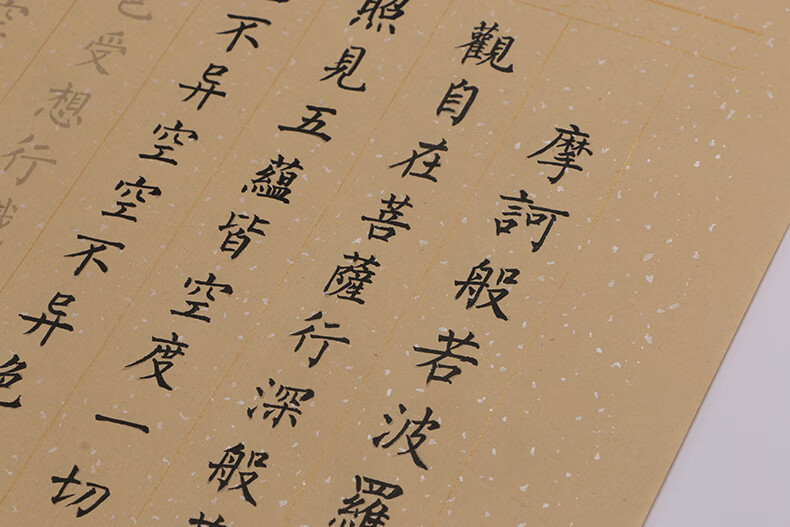 摩訶般若波羅
觀自在菩薩行深般若
照見五蘊皆空度一切
不异空空不异色
受想行識